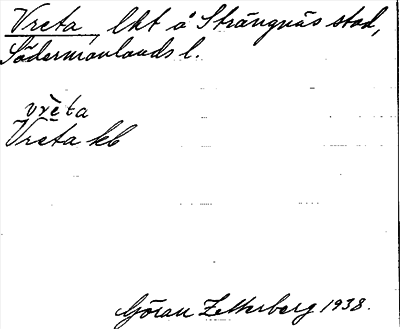 Vreta, lkt å Strängnäs stad,
Södermanlands l.
vrèta
Vreta kb
Göran Zetterberg 1938.